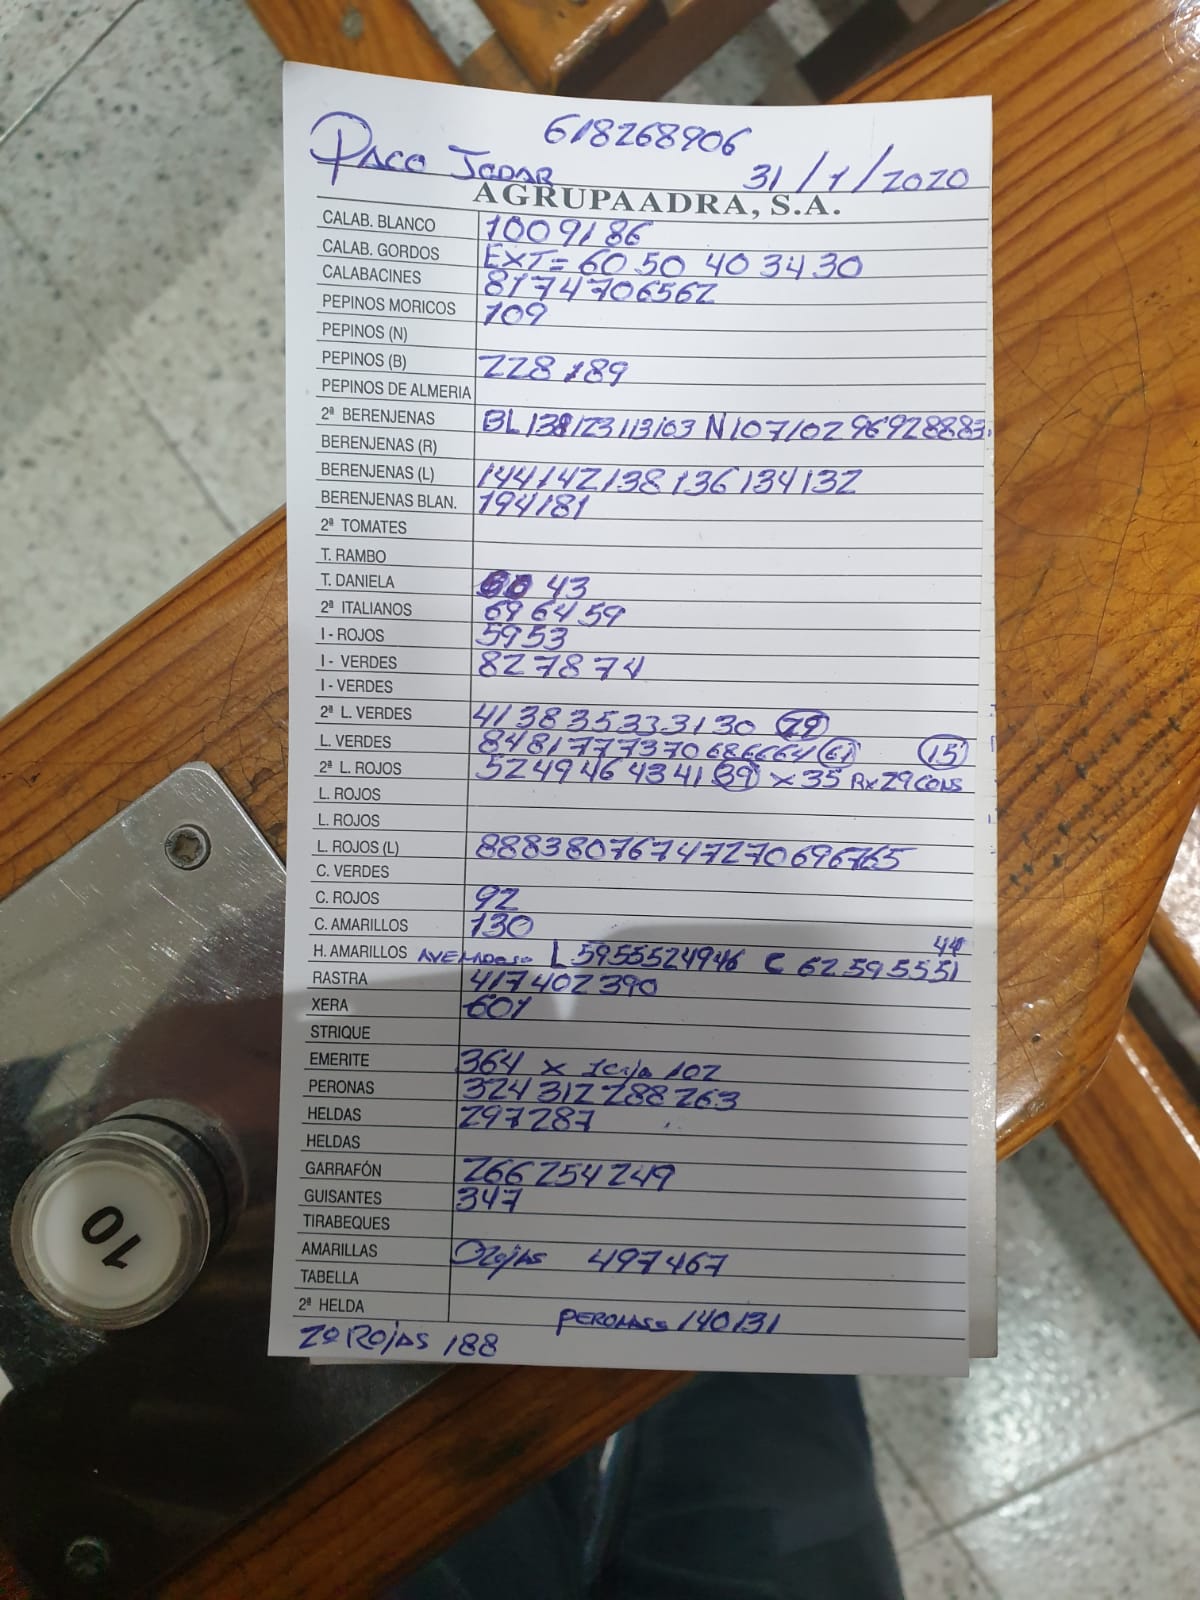 618268906
PACO JODAR 31/1/2020
AGRUPAADRA, S.A.
CALAB. BLANCO 100 91 86
CALAB. GORDOS EXT= 60 50 40 34 30
CALABACINES 81 74 70 65 62
PEPINOS MORICOS 109
PEPINOS (N)
PEPINOS (B) 228 189
PEPINOS DE ALMERIA
2ª BERENJENAS BL 138 123 113 103 N 107 102 96 92 88 83.
BERENJENAS (R)
BERENJENAS (L) 144 142 138 136 134 132
BERENJENAS BLAN. 194 181
2ª TOMATES
T. RAMBO
T. DANIELA 43
2ª ITALIANOS 69 64 59
I - ROJOS 59 53
I - VERDES 82 78 74
I - VERDES
2ª L. VERDES 41 38 35 33 31 30 29
L. VERDES 84 81 77 73 70 68 66 64 61 15
2ª L. ROJOS 52 49 46 43 41 39 x 35 Rx 29 CONS
L. ROJOS
L. ROJOS
L. ROJOS (L) 88 83 80 76 74 72 70 69 67 65
C. VERDES
C. ROJOS 92
C. AMARILLOS 130
44
H. AMARILLOS L 59 55 52 49 46 C 62 59 55 51
RASTRA 417 402 390
XERA 601
STRIQUE
EMERITE 364 x 1 caja 102
PERONAS 324 312 288 263
HELDAS 297 287
HELDAS
GARRAFÓN 266 254 249
GUISANTES 347
TIRABEQUES
AMARILLAS Rojas 497 467
TABELLA
2ª HELDA PERONAS 140 131
2ª ROJAS 188
10